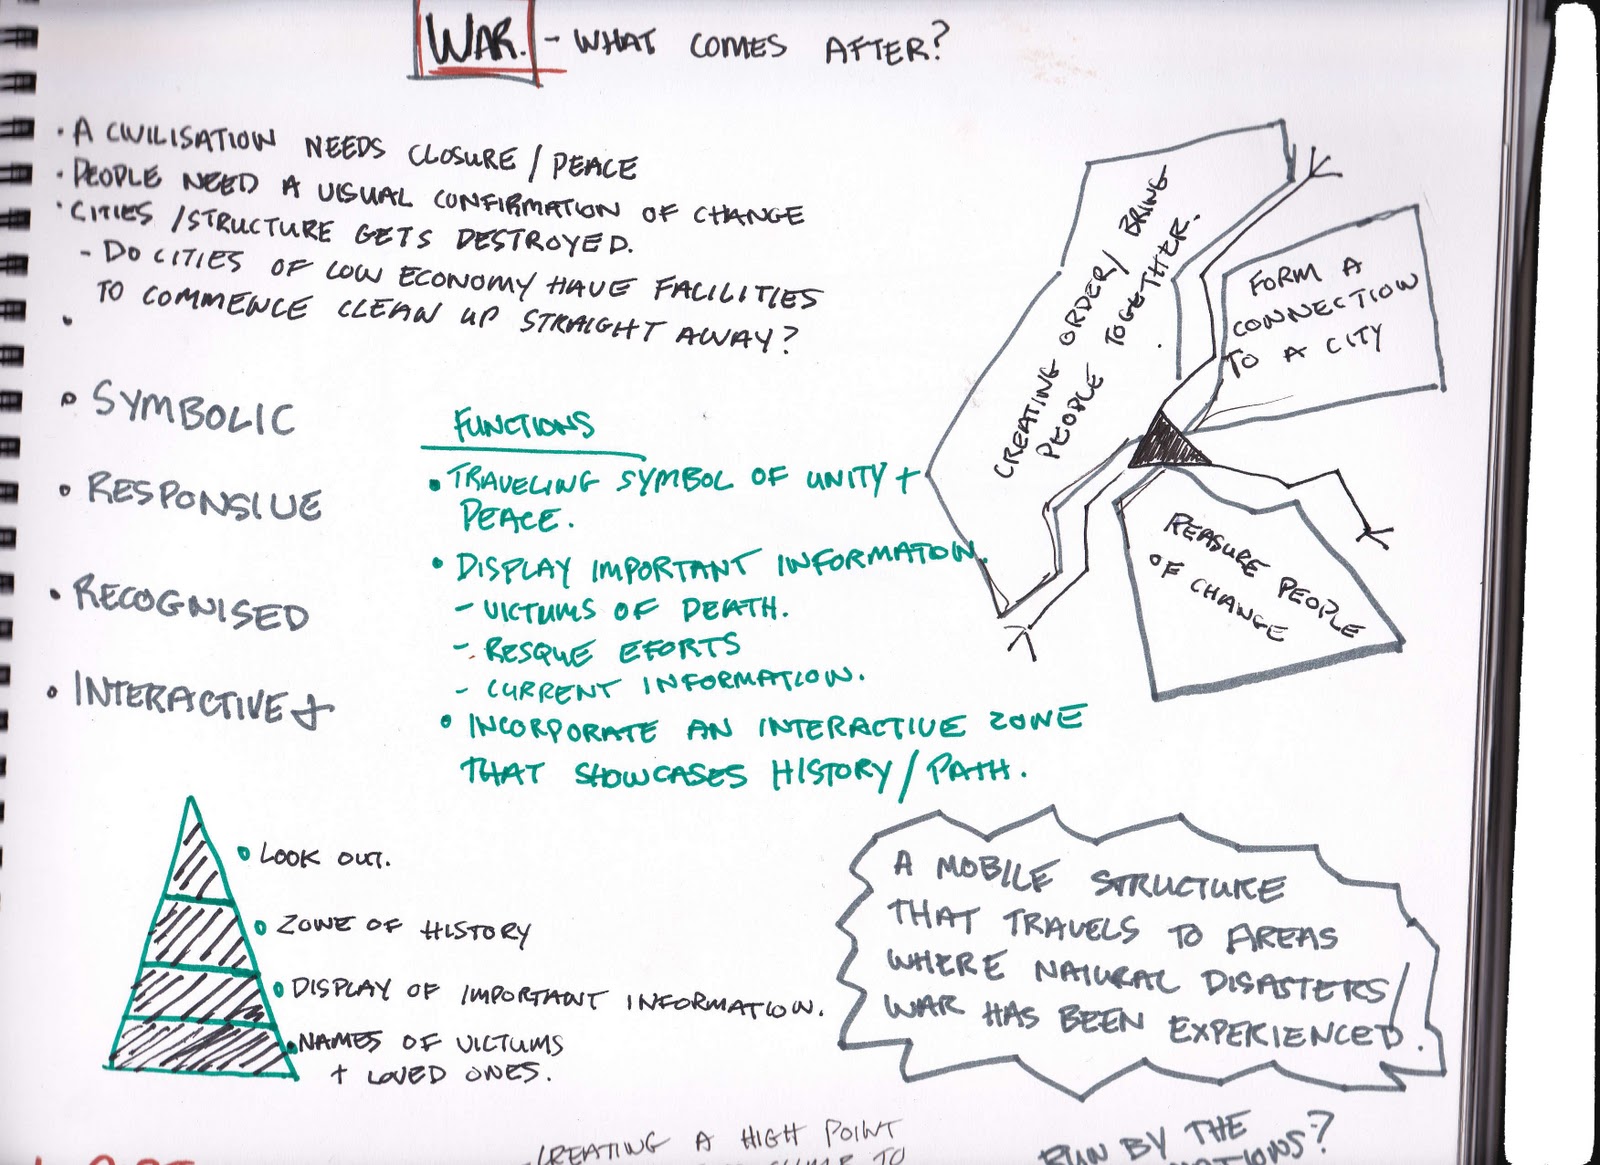 WAR. - WHAT COMES AFTER?
• A CIVILISATION NEEDS CLOSURE / PEACE
• PEOPLE NEED A VISUAL CONFIRMATION OF CHANGE
• CITIES / STRUCTURE GETS DESTROYED.
- DO CITIES OF LOW ECONOMY HAVE FACILITIES
TO COMMENCE CLEAN UP STRAIGHT AWAY?
•
• SYMBOLIC
• RESPONSIVE
• RECOGNISED
• INTERACTIVE +
FUNCTIONS
• TRAVELING SYMBOL OF UNITY +
PEACE.
• DISPLAY IMPORTANT INFORMATION.
- VICTUMS OF DEATH.
- RESQUE EFORTS
- CURRENT INFORMATION.
• INCORPORATE AN INTERACTIVE ZONE
THAT SHOWCASES HISTORY / PATH.
CREATING ORDER / BRING
PEOPLE TOGETHER.
FORM A
CONNECTION
TO A CITY
REASURE PEOPLE
OF CHANGE
• LOOK OUT.
• ZONE OF HISTORY
• DISPLAY OF IMPORTANT INFORMATION.
• NAMES OF VICTUMS
+ LOVED ONES.
A MOBILE STRUCTURE
THAT TRAVELS TO AREAS
WHERE NATURAL DISASTERS /
WAR HAS BEEN EXPERIENCED.
CREATING A HIGH POINT
TO
RUN BY THE
?